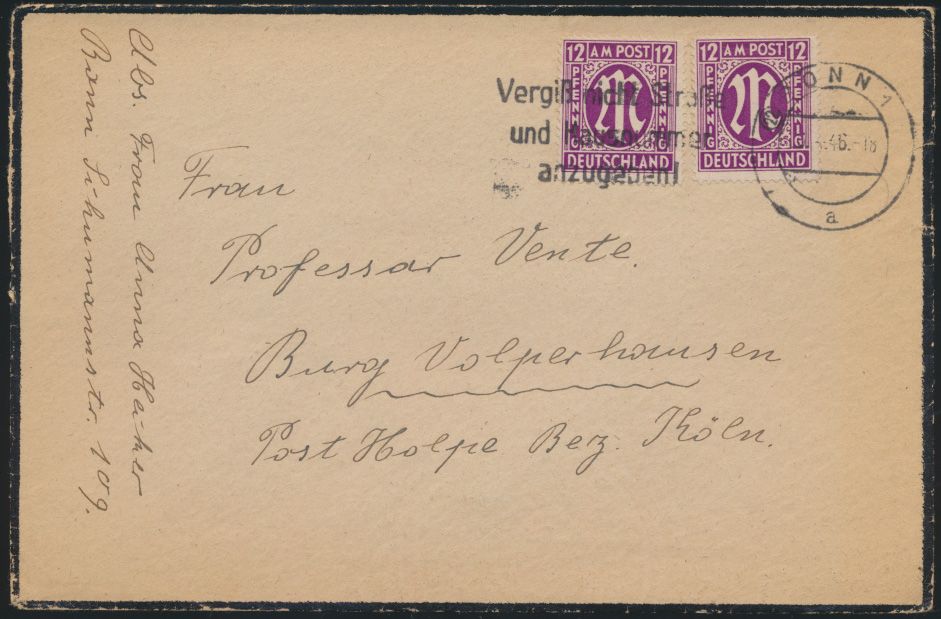 12 AM POST 12
PFENNIG PFENNIG
DEUTSCHLAND
12 AM POST 12
PFENNIG PFENNIG
DEUTSCHLAND
Vergiß nicht Straße
und Hausnummer
anzugeben!
BONN 1
.46.-18
a
Frau
Professor Vente.
Burg Volperhausen
Post Holpe Bez. Köln.
Abs. Frau Anna Haker
Bonn Schumannstr. 109.